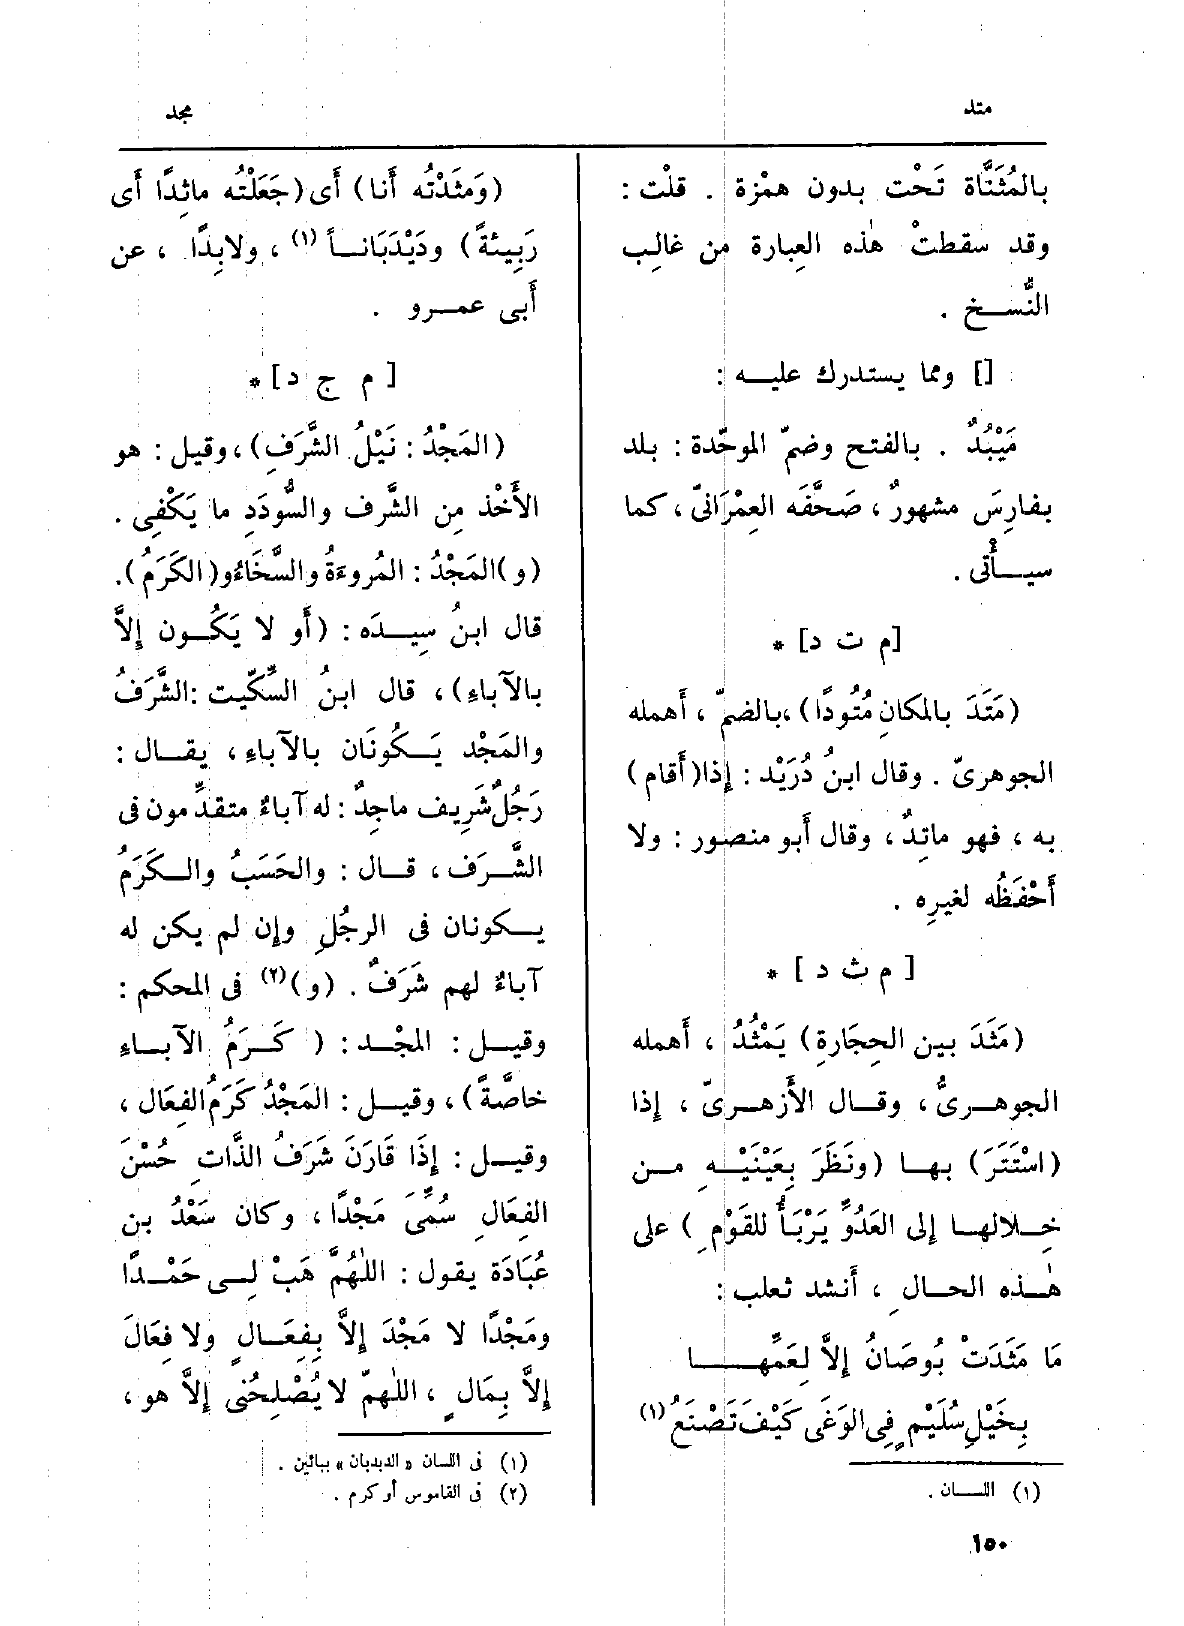 متد
مجد
بالمُثَنَّاة تَحْت بدون همْزة . قلْت :
وقد سقطتْ هٰذه العِبارة من غالِب
النُّسخ .
[] ومما يستدرك عليه :
مَيْبُدٌ . بالفتح وضمّ الموحّدة : بلد
بفارِسَ مشهورٌ ، صَحَّفَه العِمْرَانىّ ، كما
سيأْتى .
[م ت د] *
(مَتَدَ بالمكانِ مُتُودًا)،بالضمّ ، أَهمله
الجوهرىّ . وقال ابنُ دُرَيْد : إِذا(أَقام)
به ، فهو ماتِدٌ ، وقال أَبو منصور : ولا
أَحْفَظُه لغيرِه .
[م ث د] *
(مَثَدَ بين الحِجَارةِ) يَمْثُدُ ، أَهمله
الجوهرىُّ ، وقال الأَزهرىّ ، إِذا
(اسْتَتَرَ) بها (ونَظَرَ بِعَيْنَيْهِ من
خِلالها إِلى العَدُوِّ يَرْبَأُ للقَوْمِ ) على
هٰذه الحالِ ، أَنشد ثعلب :
مَا مَثَدَتْ بُوصَانُ إِلاَّ لِعَمِّها
بِخَيْلِ سُلَيْمٍ فِى الوَغَى كَيْفَ تَصْنَعُ (١)
(١) اللسان .
(وَمَثَدْتُه أَنا) أَى (جَعَلْتُه ماثِدًا أَى
رَبِيئةً) ودَيْدَبَاناً (١) ، ولابِدًا ، عن
أَبى عمرو .
[م ج د] *
(المَجْدُ : نَيْلُ الشَّرَفِ) ، وقيل : هو
الأَخْذ مِن الشَّرف والسُّودَدِ ما يَكْفِى .
(و)المَجْدُ : المُروءَةُ والسَّخَاءُو(الكَرَمُ).
قال ابنُ سِيدَه : (أَو لا يَكُون إِلاَّ
بالآباءِ) ، قال ابنُ السِّكِّيت :الشَّرَفُ
والمَجْد يَكُونَان بالآباءِ ، يقال :
رَجُلٌ شَرِيف ماجِدٌ : له آباءٌ متقدِّمون فى
الشَّرَف ، قال : والحَسَبُ والكَرَمُ
يكونان فى الرجُلِ وإِن لم يكن له
آباءٌ لهم شَرَفٌ . (و) (٢) فى المحكم :
وقيل : المجْد : ( كَرَمُ الآباءِ
خاصَّةً) ، وقيل : المَجْدُ كَرَمُ الفِعَال ،
وقيل : إِذَا قَارَنَ شَرَفُ الذَّاتِ حُسْنَ
الفِعَالِ سُمِّىَ مَجْدًا ، وكان سَعْدُ بن
عُبَادَة يقول : اللّٰهُمَّ هَبْ لِى حَمْدًا
ومَجْدًا لا مَجْدَ إِلاَّ بِفِعَالٍ ولا فِعَالَ
إِلاَّ بِمَالٍ ، اللّٰهمّ لا يُصْلِحُنِى إِلاَّ هو ،
(١) فى اللسان « الديدبان » بيائين .
(٢) فى القاموس أو كرم .
١٥٠